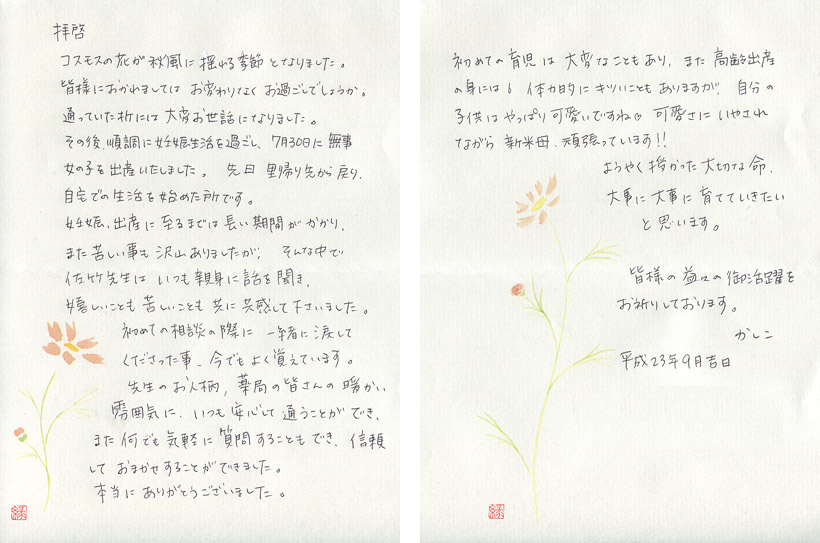 拝啓
コスモスの花が秋風に揺れる季節となりました。
皆様におかれましては お変わりなく お過ごしでしょうか。
通っていた折には 大変お世話になりました。
その後、順調に妊娠生活を過ごし、7月30日に 無事
女の子を出産いたしました。 先日 里帰り先から戻り、
自宅での生活を始めた所です。
妊娠、出産に至るまでは長い期間がかかり、
また苦しい事も沢山ありましたが、 そんな中で
佐竹先生は いつも親身に話を聞き、
嬉しいことも 苦しいことも 共に共感して下さいました。
初めての相談の際に 一緒に涙して
くださった事、今でもよく覚えています。
先生のお人柄、薬局の皆さんの暖かい
雰囲気に、いつも安心して通うことができ、
また何でも気軽に質問することもでき、信頼
して おまかせすることができました。
本当に ありがとうございました。
初めての育児は 大変なこともあり、また 高齢出産
の身には 体力的に キツいこともありますが、自分の
子供は やっぱり可愛いですね 可愛さに いやされ
ながら 新米母、頑張っています!!
ようやく授かった大切な命、
大事に大事に育てていきたい
と思います。
皆様の益々の御活躍を
お祈りしております。
かしこ
平成23年9月吉日